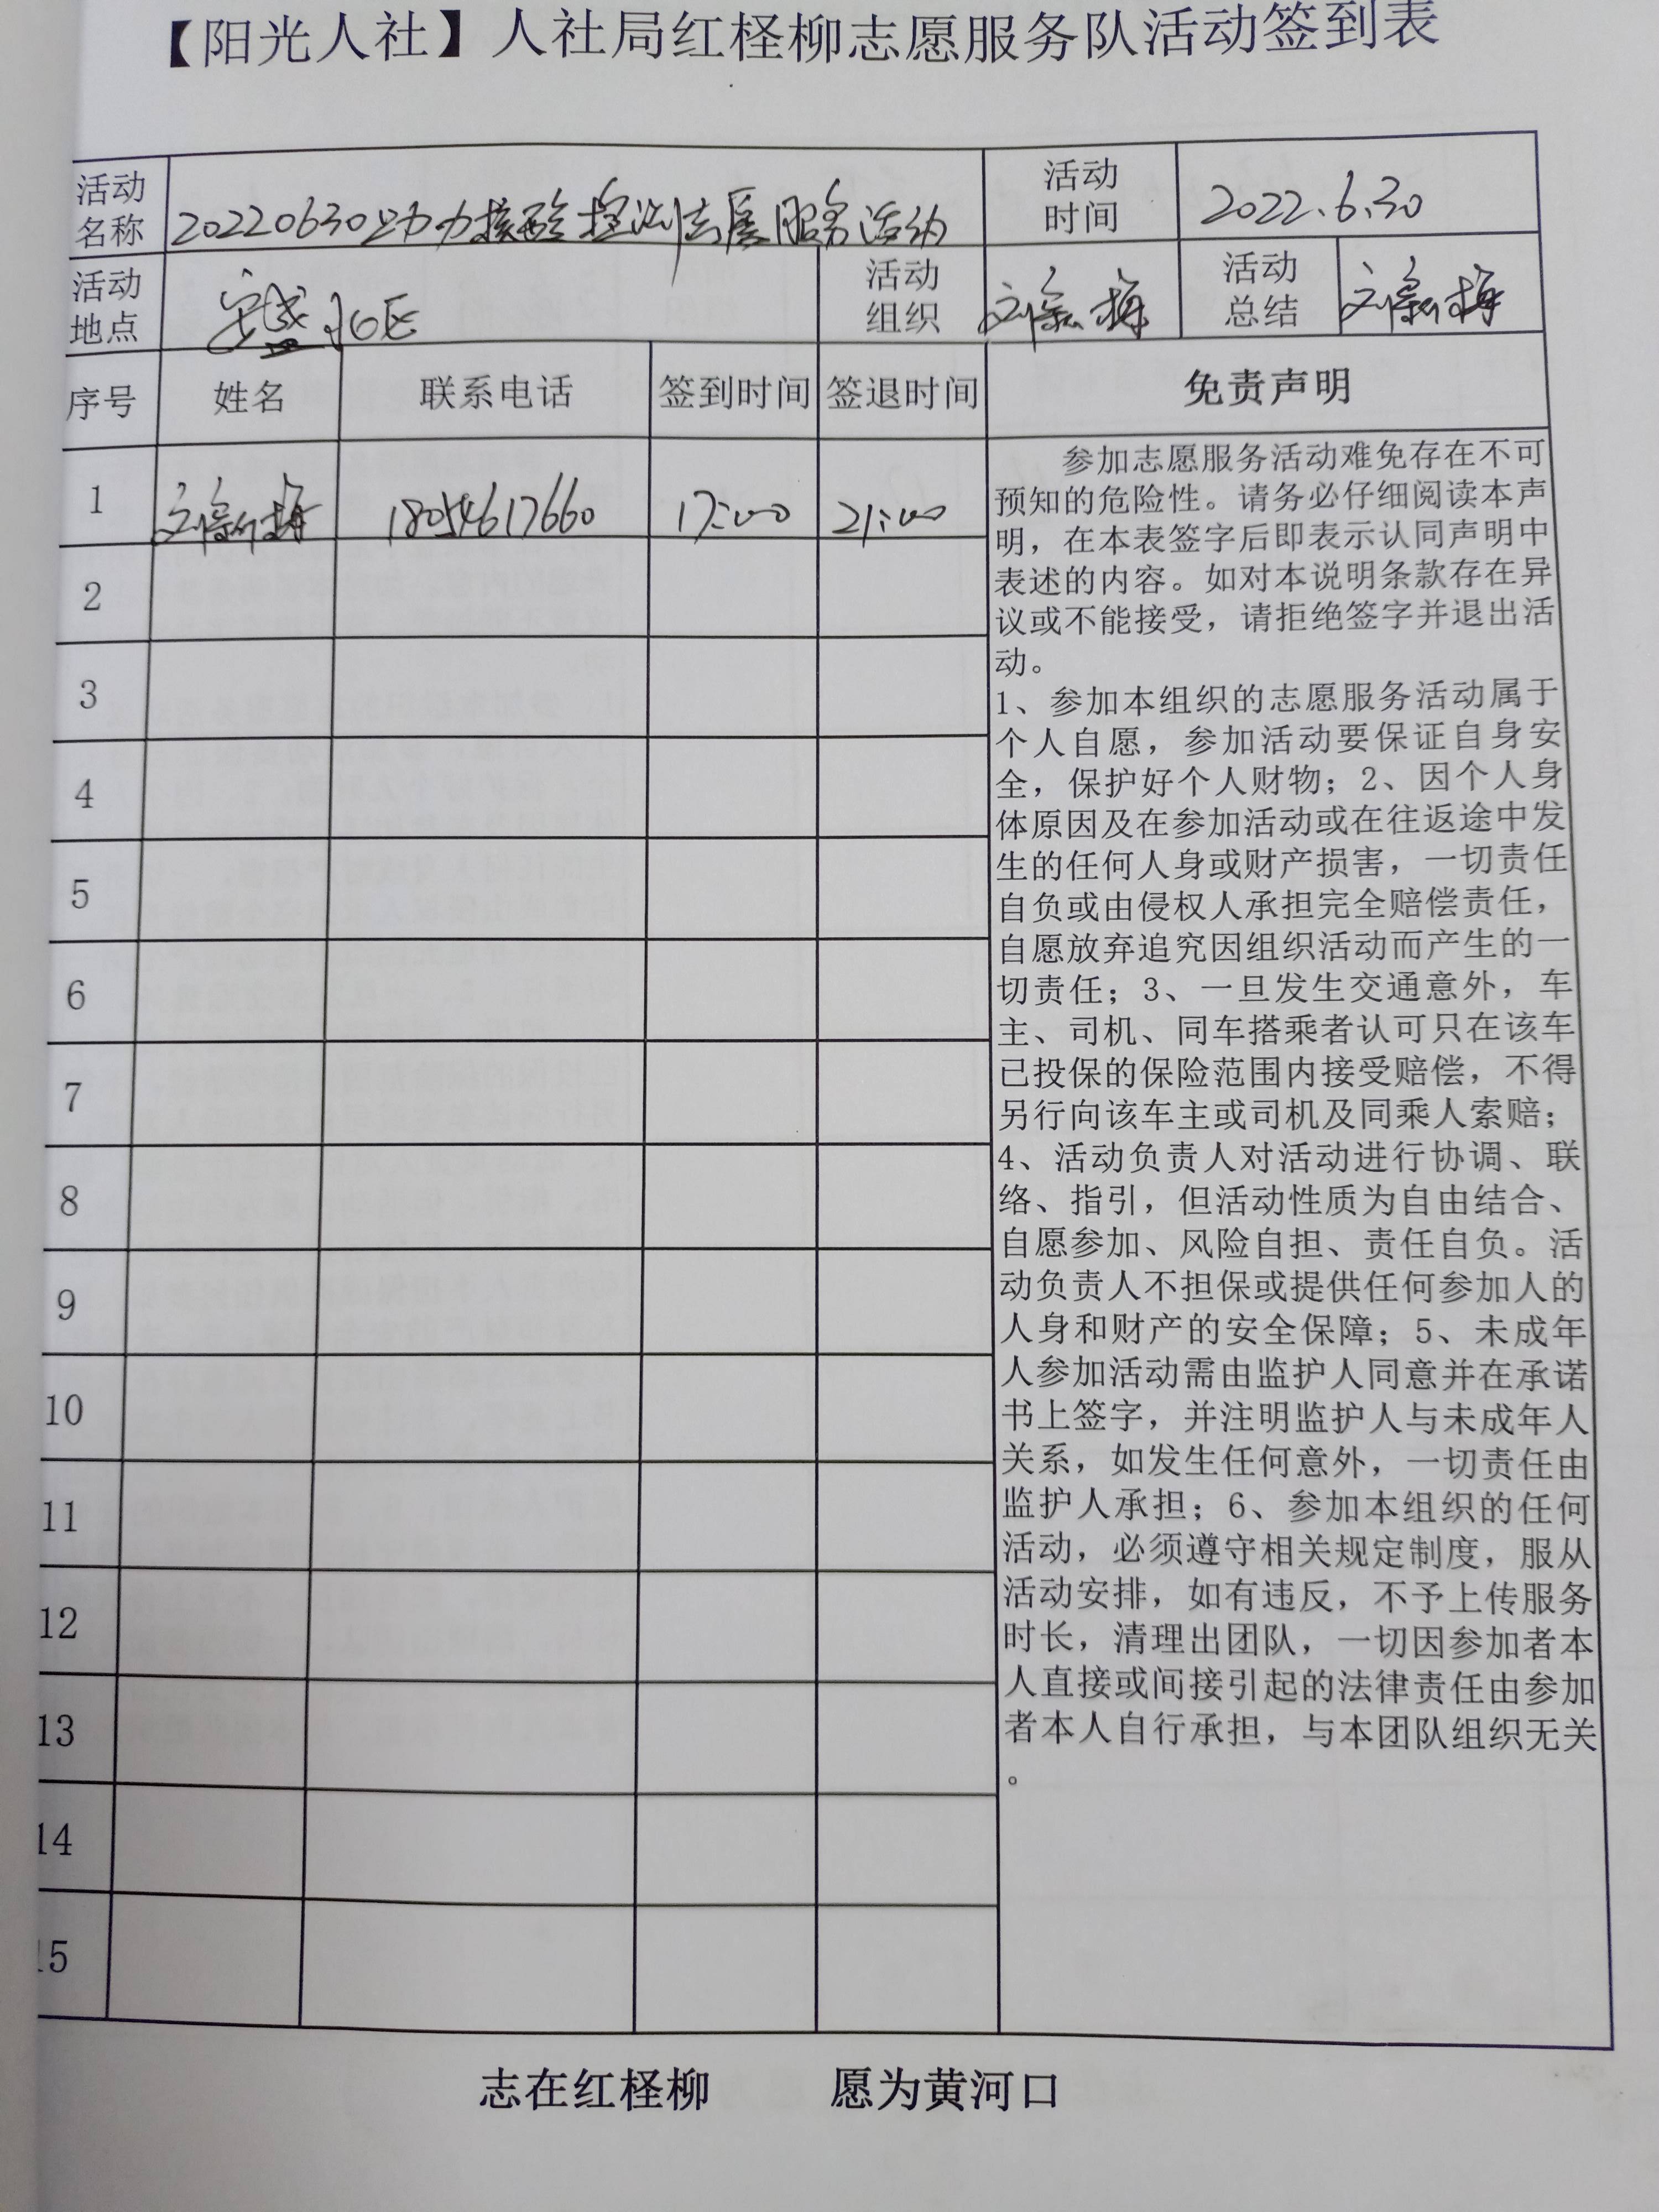 【阳光人社】人社局红柽柳志愿服务队活动签到表
活动名称 20220630助力核酸检测志愿服务活动 活动时间 2022.6.30
活动地点 安盛北区 活动组织 活动总结
序号 姓名 联系电话 签到时间 签退时间 免责声明
1 18054617660 17:00 21:00
2
3
4
5
6
7
8
9
10
11
12
13
14
15
参加志愿服务活动难免存在不可
预知的危险性。请务必仔细阅读本声
明，在本表签字后即表示认同声明中
表述的内容。如对本说明条款存在异
议或不能接受，请拒绝签字并退出活
动。
1、参加本组织的志愿服务活动属于
个人自愿，参加活动要保证自身安
全，保护好个人财物；2、因个人身
体原因及在参加活动或在往返途中发
生的任何人身或财产损害，一切责任
自负或由侵权人承担完全赔偿责任，
自愿放弃追究因组织活动而产生的一
切责任；3、一旦发生交通意外，车
主、司机、同车搭乘者认可只在该车
已投保的保险范围内接受赔偿，不得
另行向该车主或司机及同乘人索赔；
4、活动负责人对活动进行协调、联
络、指引，但活动性质为自由结合、
自愿参加、风险自担、责任自负。活
动负责人不担保或提供任何参加人的
人身和财产的安全保障；5、未成年
人参加活动需由监护人同意并在承诺
书上签字，并注明监护人与未成年人
关系，如发生任何意外，一切责任由
监护人承担；6、参加本组织的任何
活动，必须遵守相关规定制度，服从
活动安排，如有违反，不予上传服务
时长，清理出团队，一切因参加者本
人直接或间接引起的法律责任由参加
者本人自行承担，与本团队组织无关
。
志在红柽柳 愿为黄河口